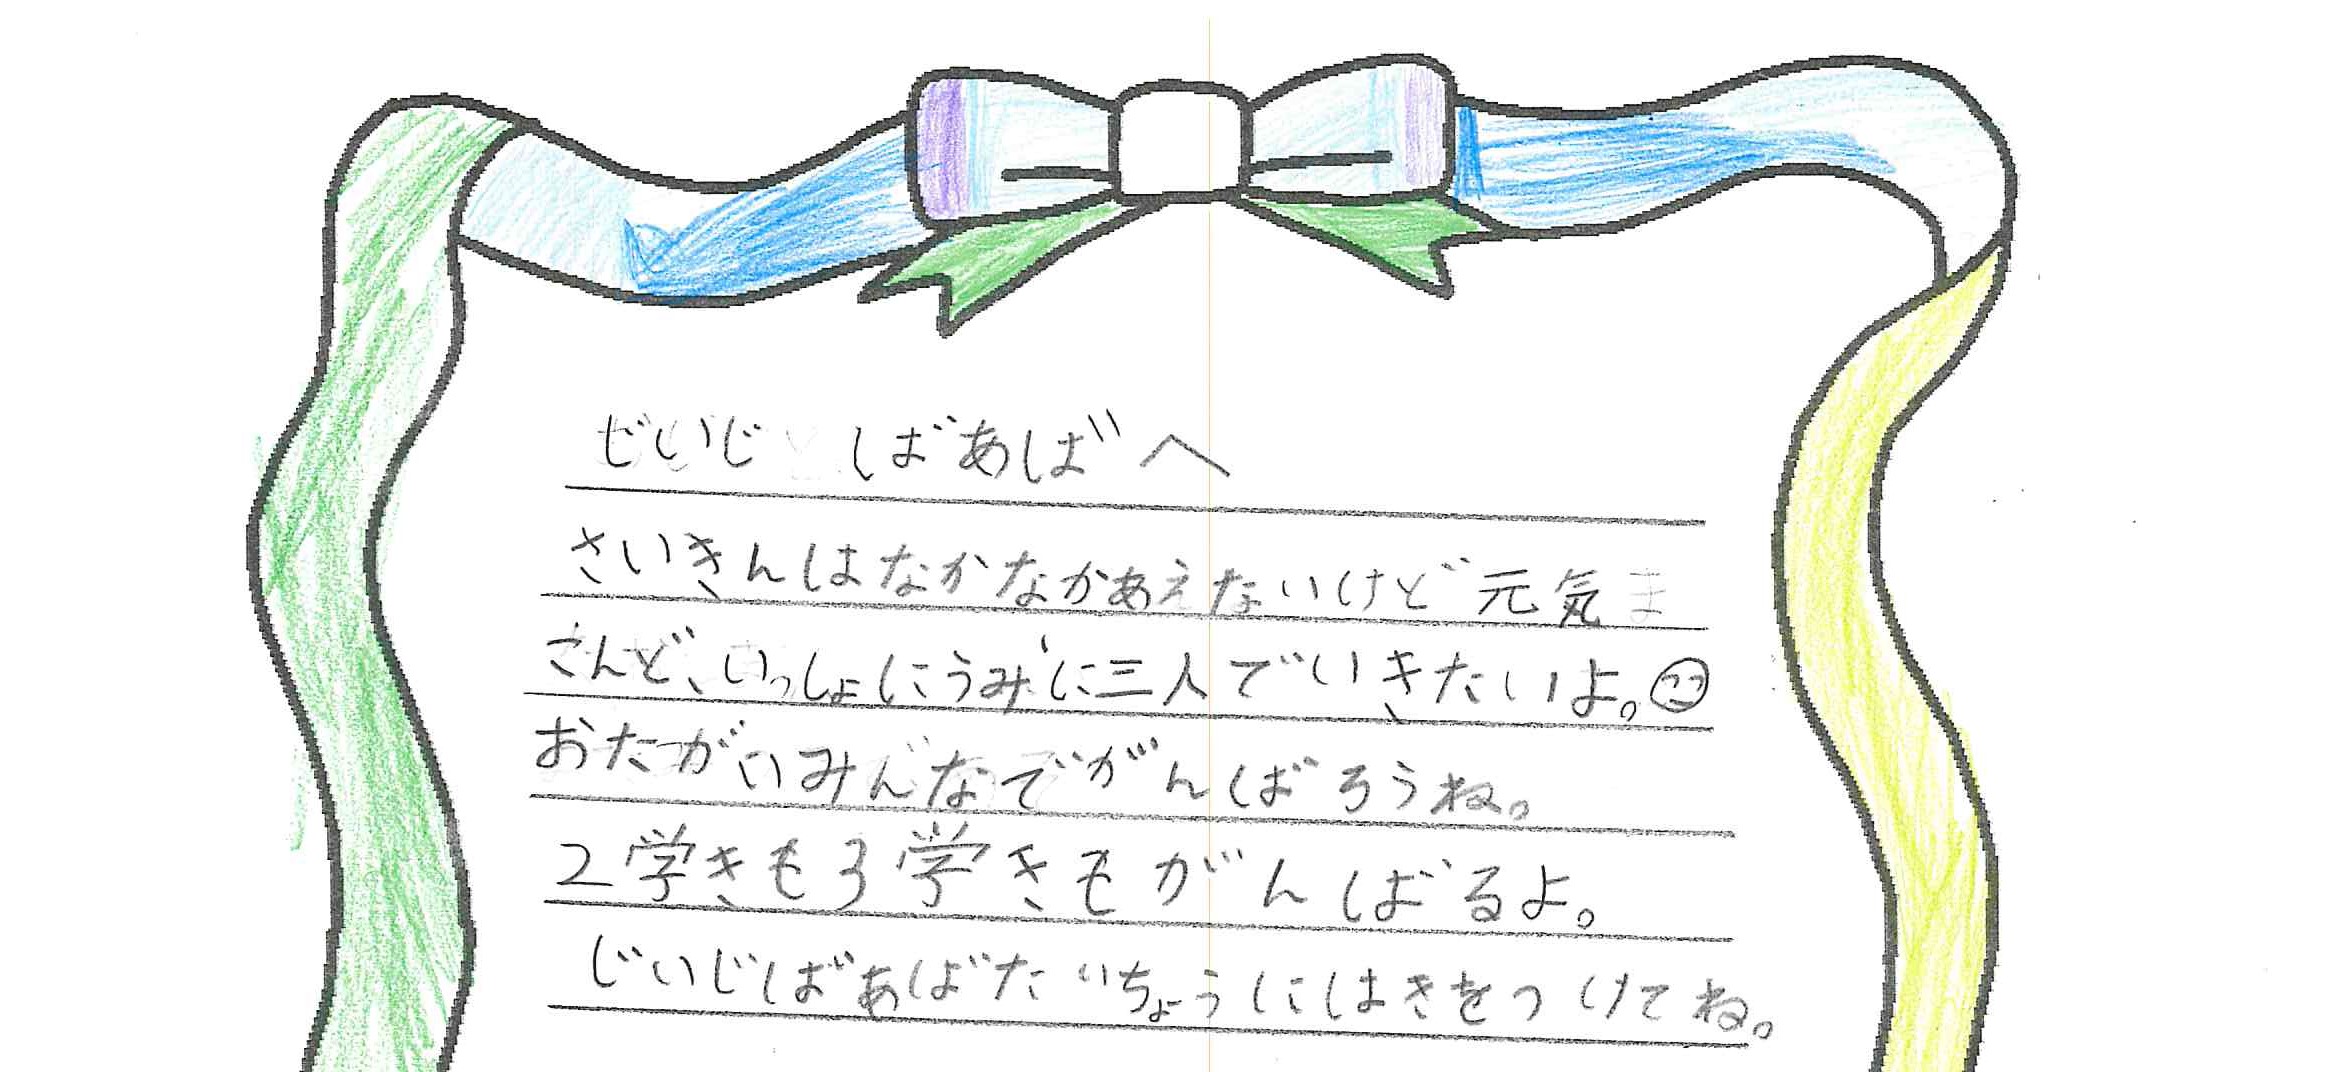 じいじ ばあばへ
さいきんはなかなかあえないけど元気
さんど、いっしょにうみに三人でいきたいよ。
おたがいみんなでがんばろうね。
2学きも3学きもがんばるよ。
じいじばあばたいちょうにはきをつけてね。